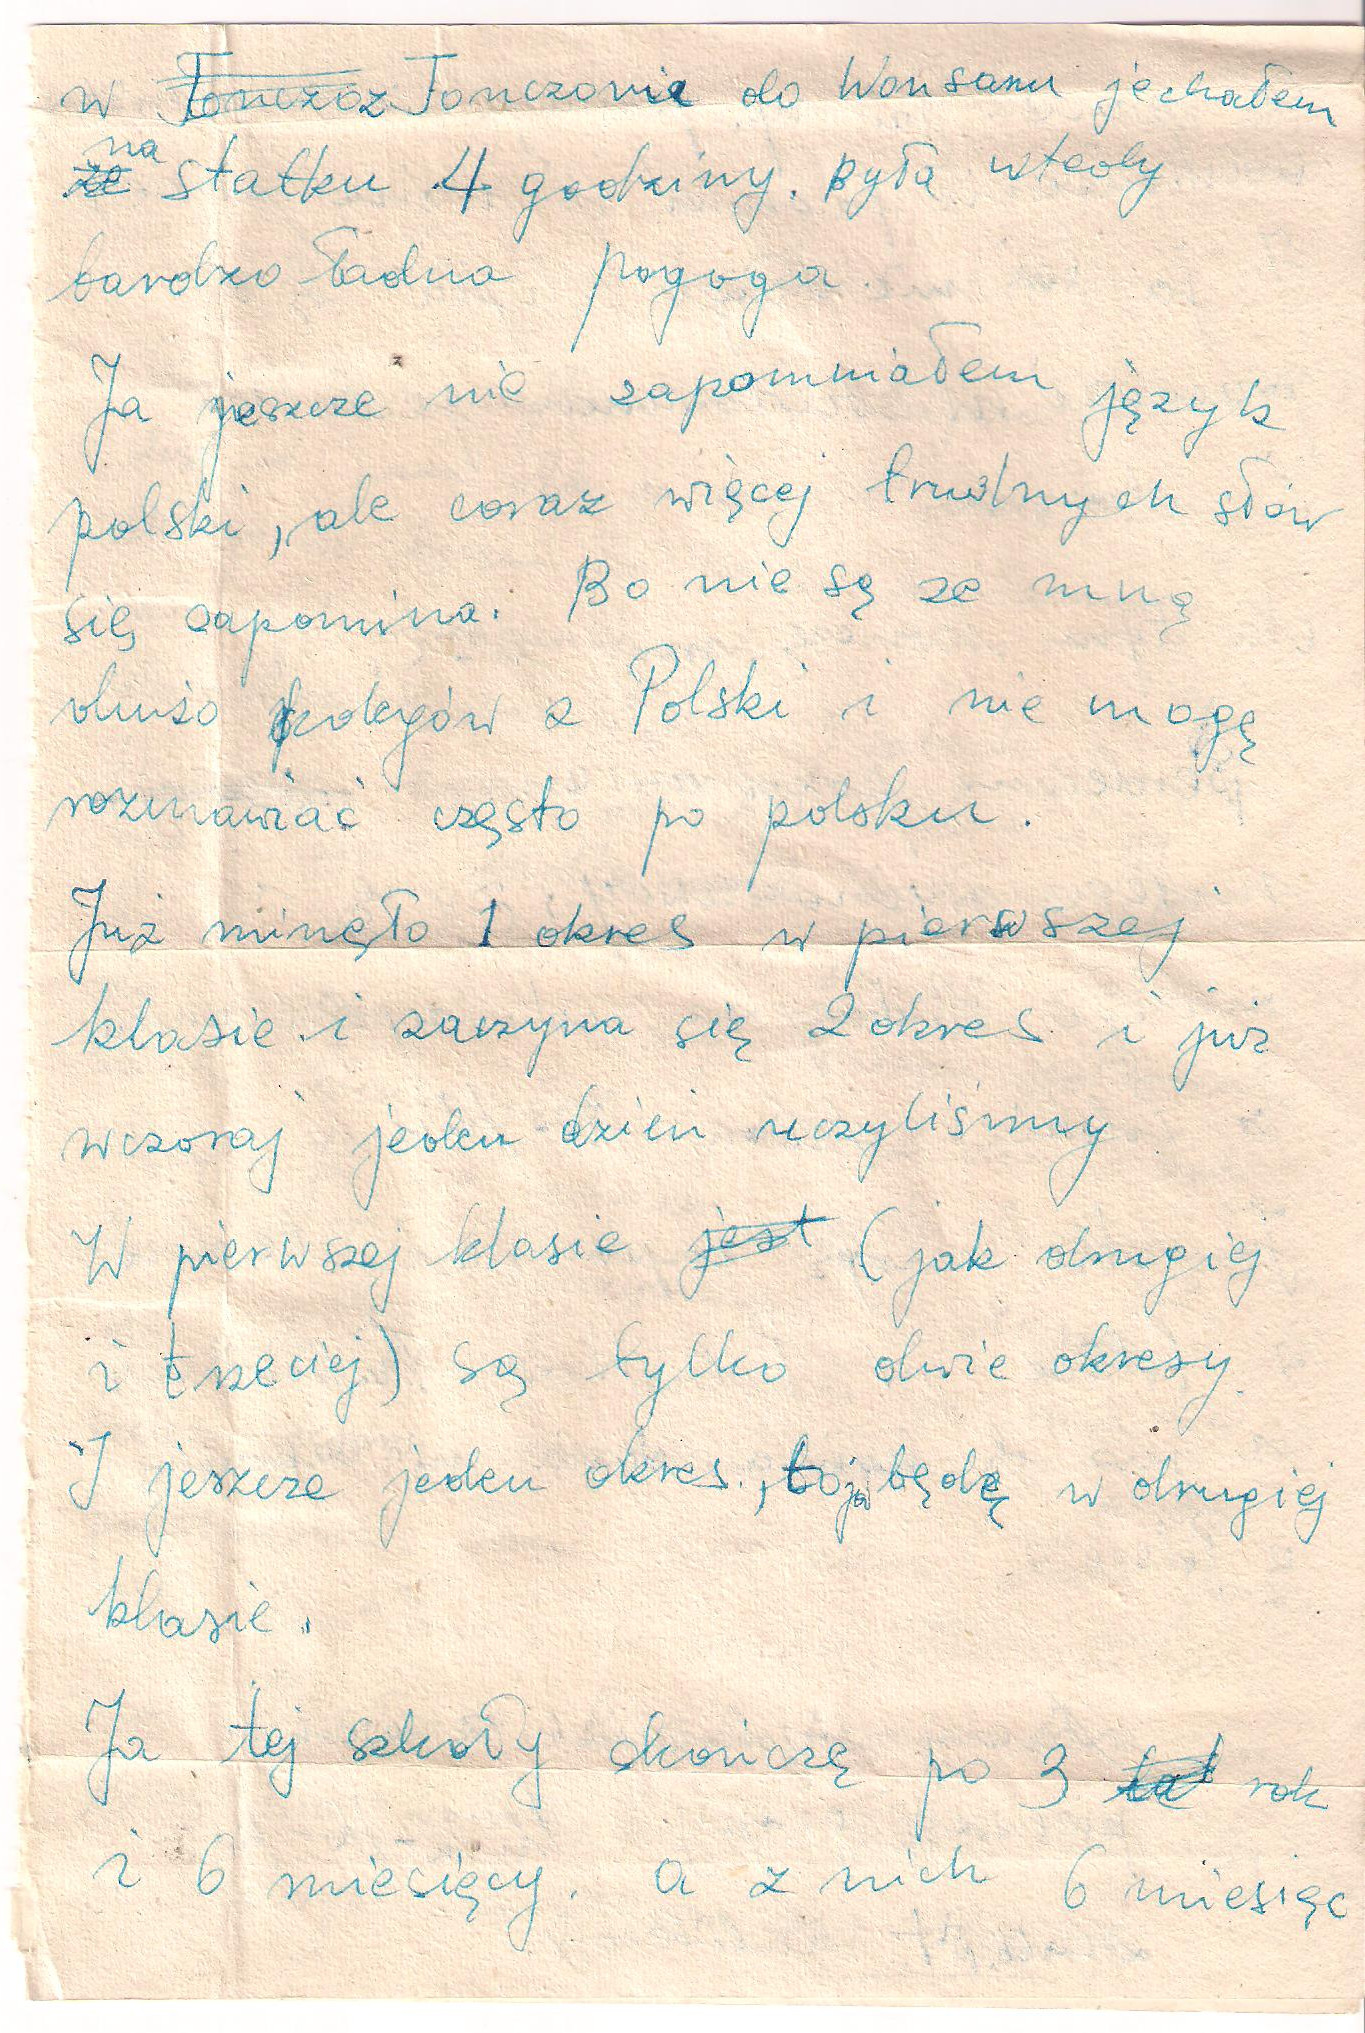 w Tonczoz Tonczonie do Wonsanu jechałem
że na statku 4 godziny. Była wtedy
bardzo ładna pogoga
Ja jeszcze nie zapomniałem język
polski, ale coraz więcej trudnych słów
się zapomina. Bo nie są ze mną
dużo kolegów z Polski i nie mogę
rozmawiać często po polsku.
Już minęło 1 okres w pierwszej
klasie i zaczyna się 2 okres i już
wczoraj jeden dzień uczyliśmy
W pierwszej klasie jest (jak drugiej
i trzeciej) są tylko dwie okresy.
I jeszcze jeden okres, to ja będę w drugiej
klasie.
Ja tej szkoły skończę po 3 lat rok
i 6 miesięcy. a z nich 6 miesiąc